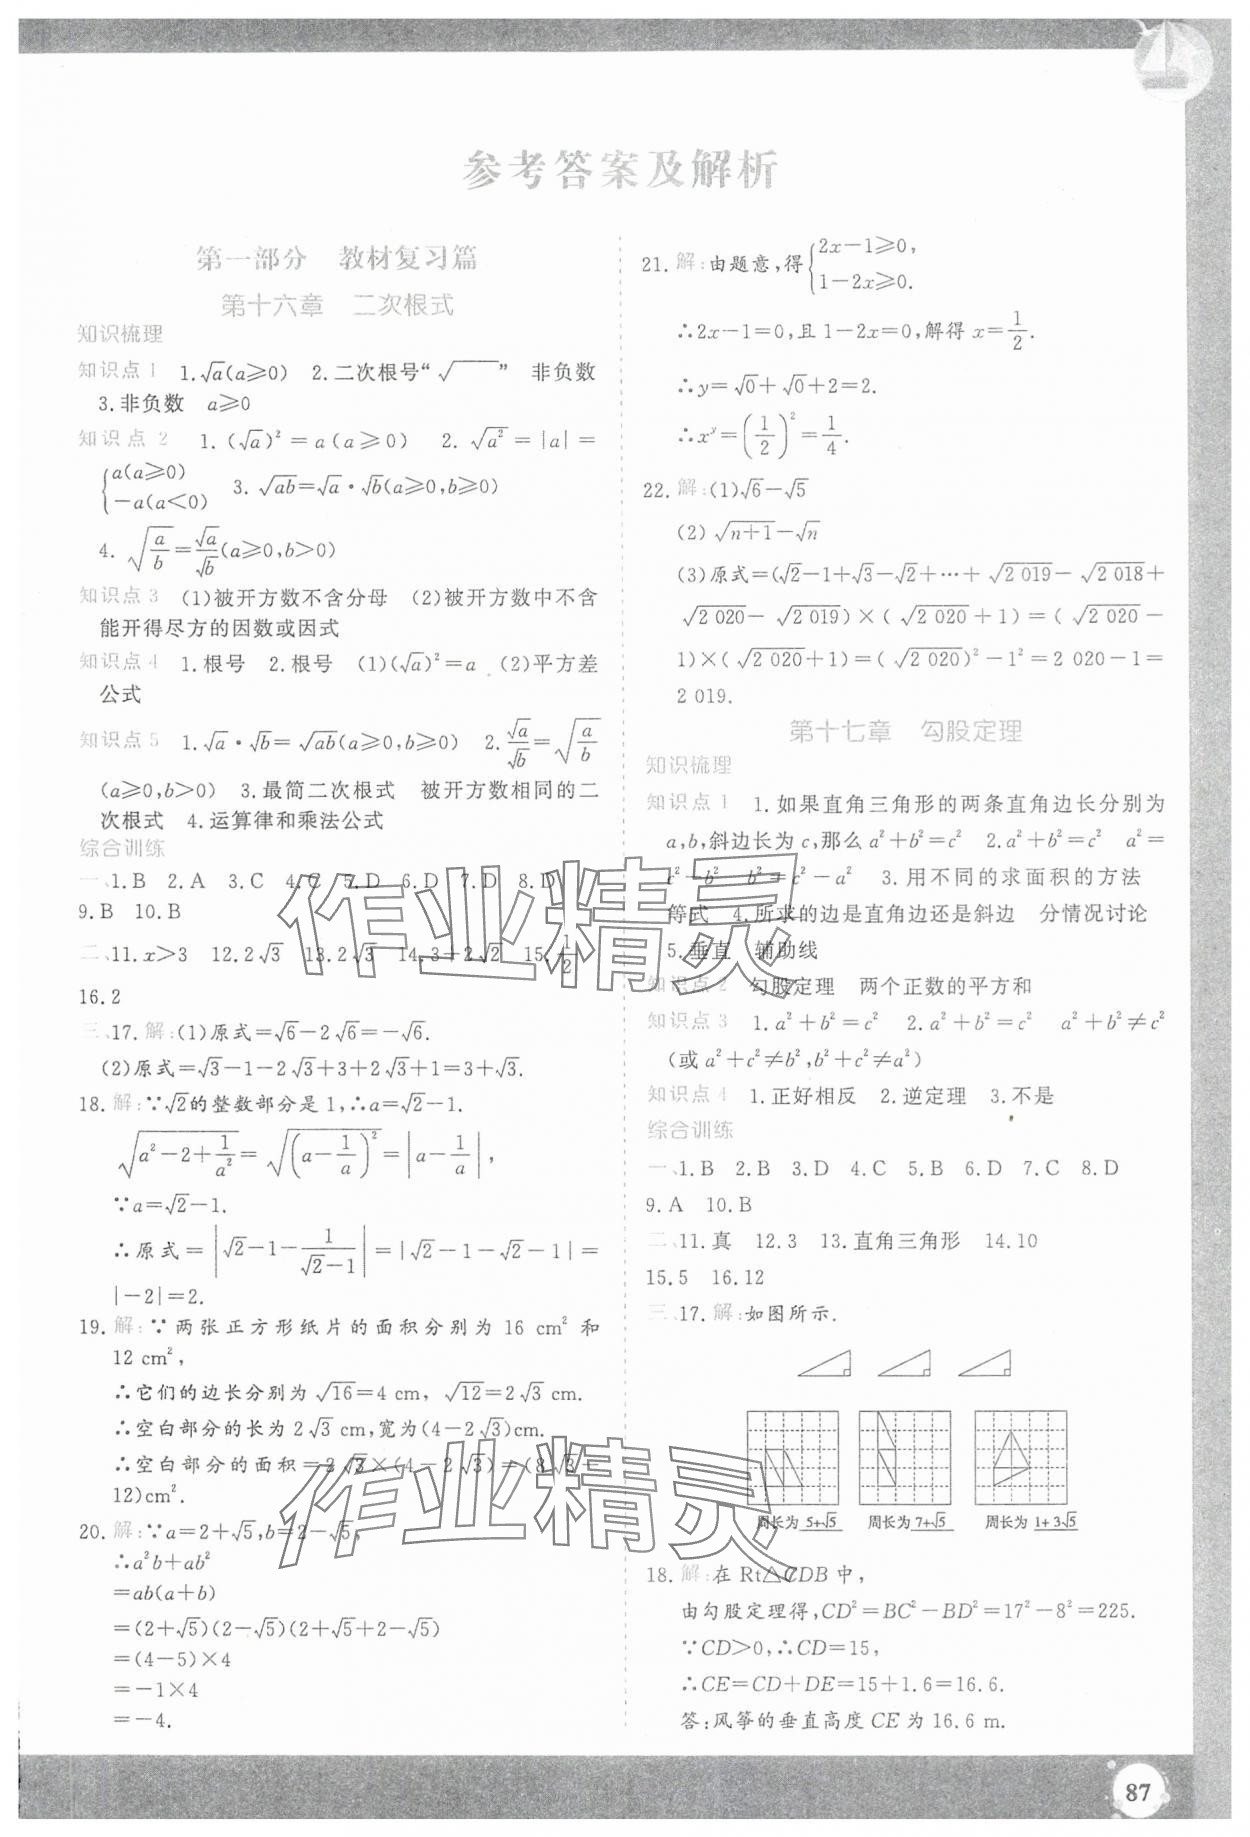 参考答案及解析
第一部分　教材复习篇
第十六章　二次根式
知识梳理
知识点 1　1.√a(a≥0)　2.二次根号“√　”　非负数
3.非负数　a≥0
知识点 2　1.(√a)²=a(a≥0)　2.√a²=|a|=
{a(a≥0)
-a(a<0)　3.√ab=√a·√b(a≥0,b≥0)
4.√(a/b)=√a/√b(a≥0,b>0)
知识点 3　(1)被开方数不含分母　(2)被开方数中不含
能开得尽方的因数或因式
知识点 4　1.根号　2.根号　(1)(√a)²=a　(2)平方差
公式
知识点 5　1.√a·√b=√ab(a≥0,b≥0)　2.√a/√b=√(a/b)
(a≥0,b>0)　3.最简二次根式　被开方数相同的二
次根式　4.运算律和乘法公式
综合训练
一、1.B　2.A　3.C　4.C　5.D　6.D　7.D　8.D
9.B　10.B
二、11.x>3　12.2√3　13.2√3　14.3+2√2　15.1/2
16.2
三、17.解:(1)原式=√6-2√6=-√6.
(2)原式=√3-1-2√3+3+2√3+1=3+√3.
18.解:∵√2的整数部分是1,∴a=√2-1.
√(a²-2+1/a²)=√((a-1/a)²)=|a-1/a|,
∵a=√2-1.
∴原式=|√2-1-1/(√2-1)|=|√2-1-√2-1|=
|-2|=2.
19.解:∵两张正方形纸片的面积分别为 16 cm² 和
12 cm²,
∴它们的边长分别为√16=4 cm, √12=2√3 cm.
∴空白部分的长为 2√3 cm,宽为(4-2√3)cm.
∴空白部分的面积=2√3×(4-2√3)=(8√3-
12)cm².
20.解:∵a=2+√5,b=2-√5,
∴a²b+ab²
=ab(a+b)
=(2+√5)(2-√5)(2+√5+2-√5)
=(4-5)×4
=-1×4
=-4.
21.解:由题意,得{2x-1≥0,
1-2x≥0.
∴2x-1=0,且1-2x=0,解得x=1/2.
∴y=√0+√0+2=2.
∴xʸ=(1/2)²=1/4.
22.解:(1)√6-√5
(2)√(n+1)-√n
(3)原式=(√2-1+√3-√2+…+√2 019-√2 018+
√2 020-√2 019)×(√2 020+1)=(√2 020-
1)×(√2 020+1)=(√2 020)²-1²=2 020-1=
2 019.
第十七章　勾股定理
知识梳理
知识点 1　1.如果直角三角形的两条直角边长分别为
a,b,斜边长为c,那么a²+b²=c²　2.a²+b²=c²　a²=
c²-b²　b²=c²-a²　3.用不同的求面积的方法
等式　4.所求的边是直角边还是斜边　分情况讨论
5.垂直　辅助线
知识点 2　勾股定理　两个正数的平方和
知识点 3　1.a²+b²=c²　2.a²+b²=c²　a²+b²≠c²
(或a²+c²≠b²,b²+c²≠a²)
知识点 4　1.正好相反　2.逆定理　3.不是
综合训练
一、1.B　2.B　3.D　4.C　5.B　6.D　7.C　8.D
9.A　10.B
二、11.真　12.3　13.直角三角形　14.10
15.5　16.12
三、17.解:如图所示.
周长为 5+√5　周长为 7+√5　周长为 1+3√5
18.解:在 Rt△CDB 中,
由勾股定理得,CD²=BC²-BD²=17²-8²=225.
∵CD>0,∴CD=15,
∴CE=CD+DE=15+1.6=16.6.
答:风筝的垂直高度CE为16.6 m.
87
作业精灵
作业精灵